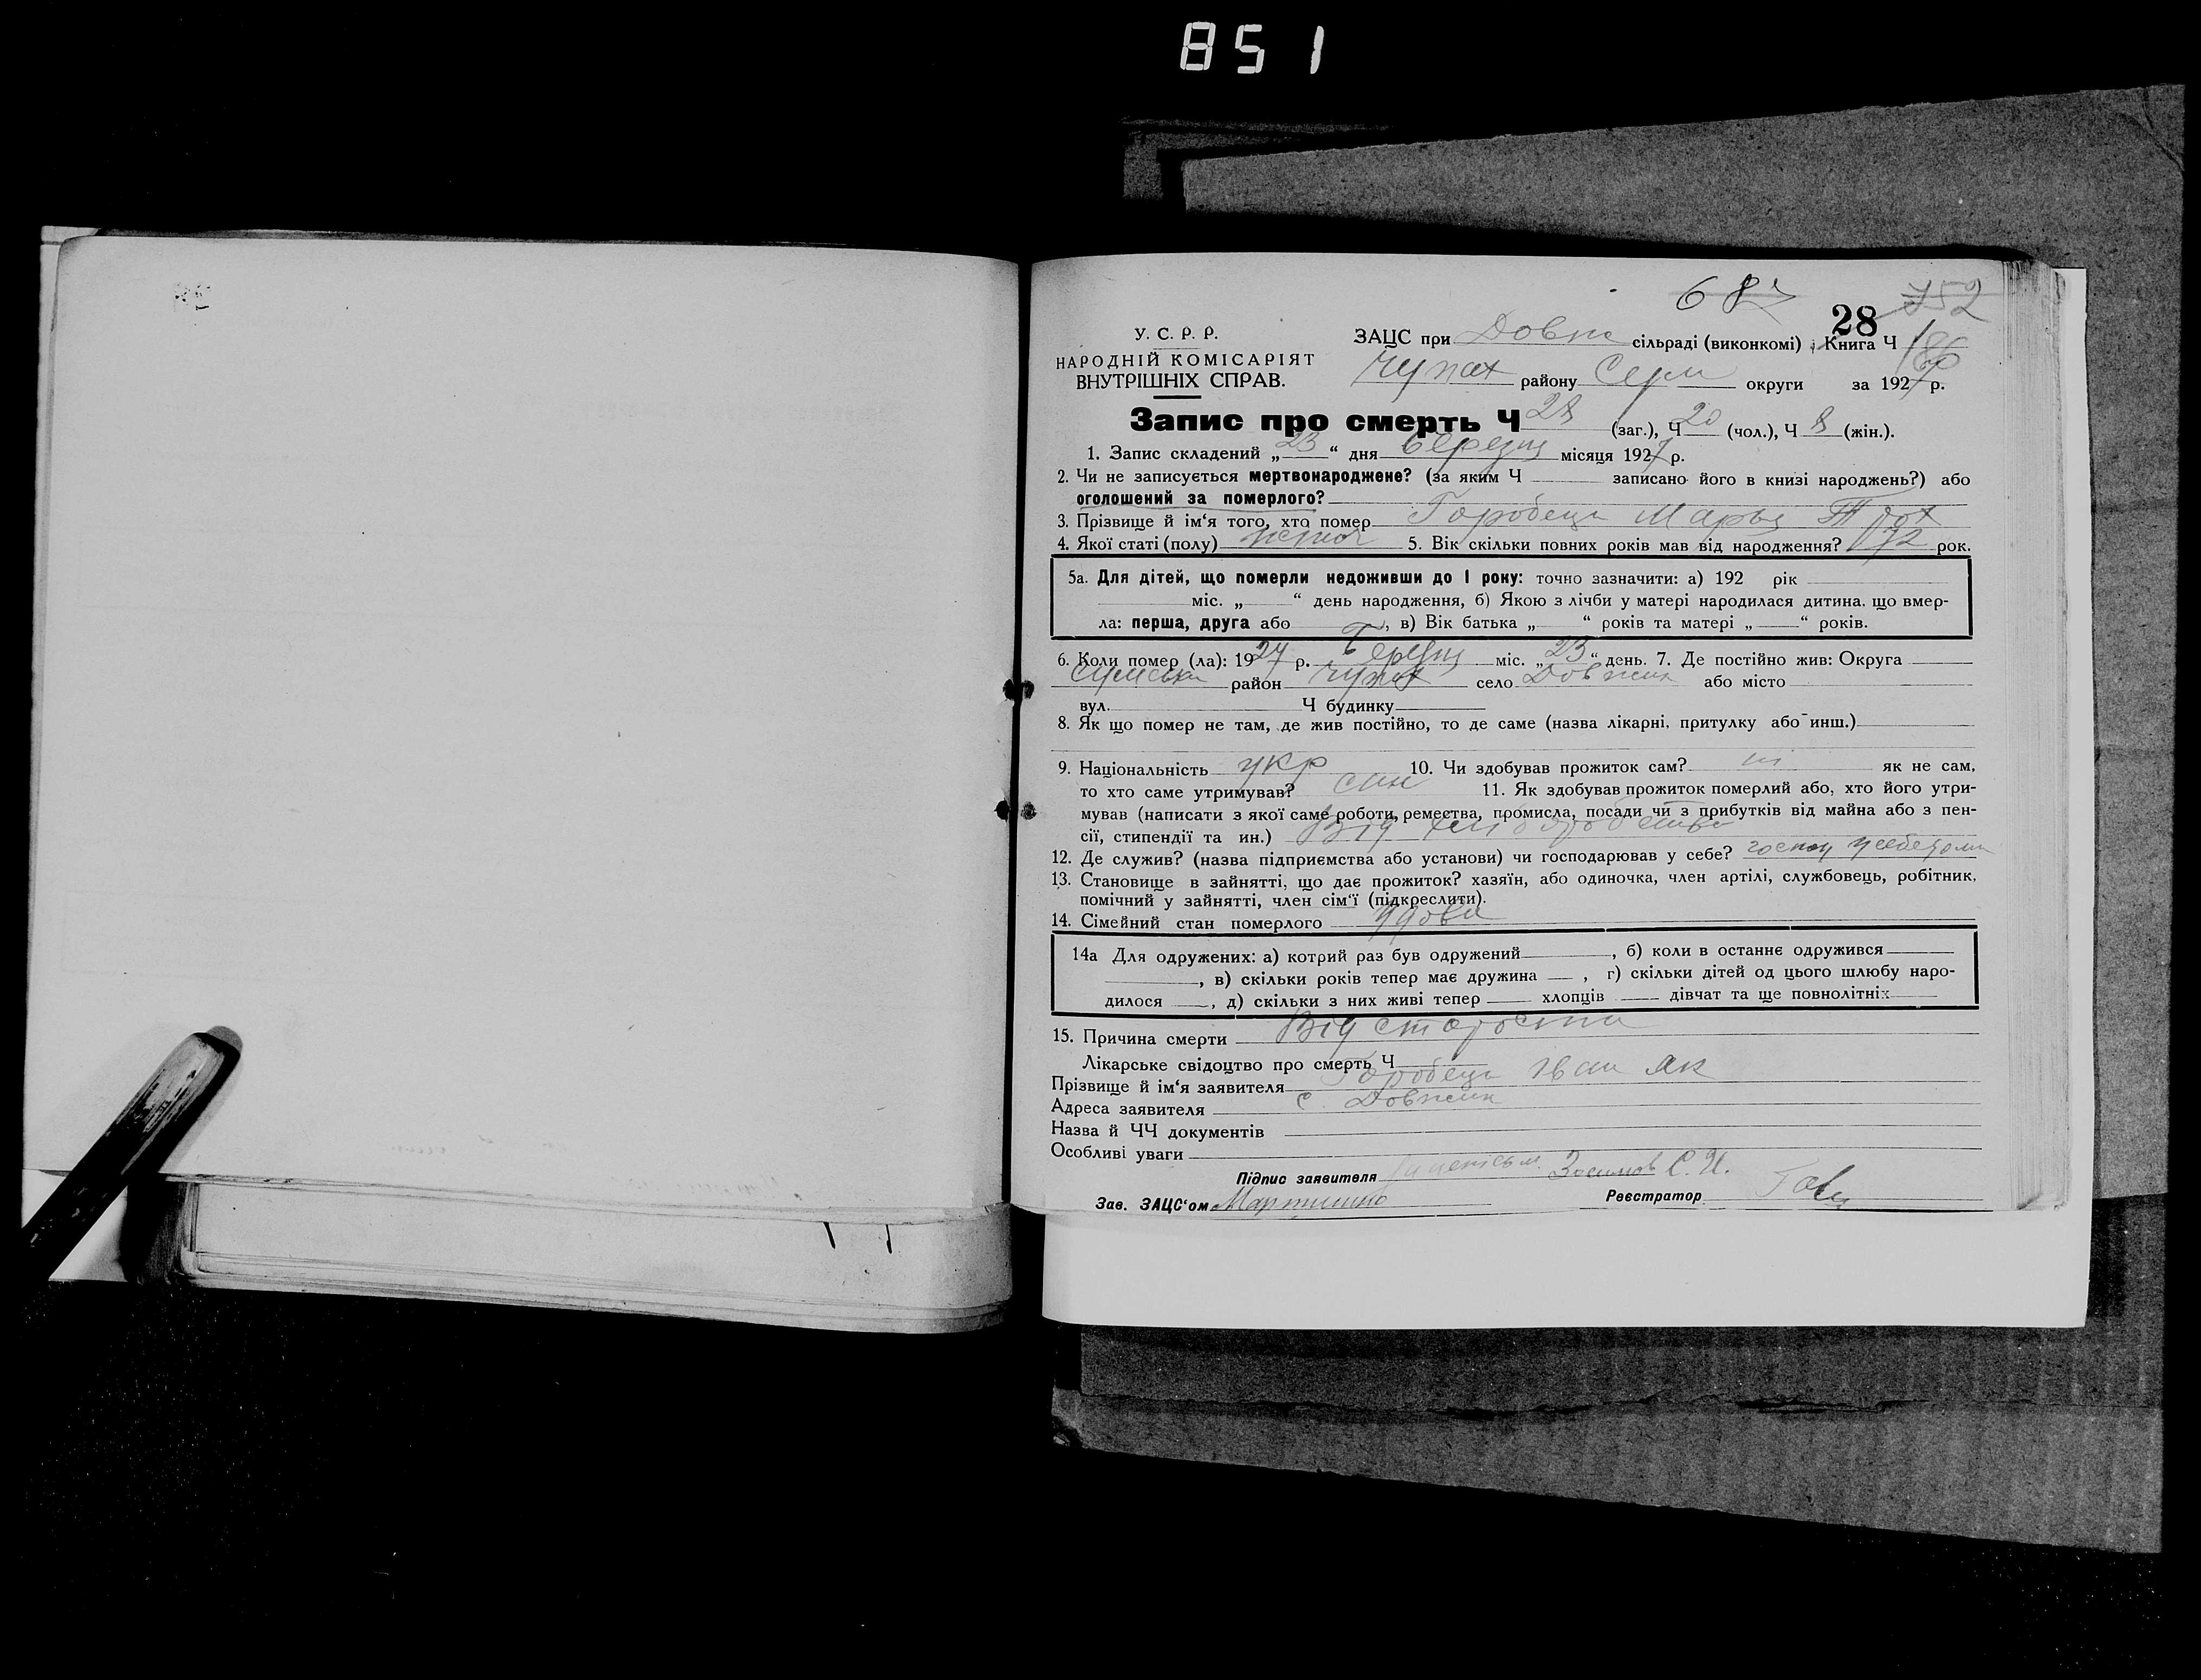 851
687
28 752
У. С. Р. Р.
НАРОДНІЙ КОМІСАРІЯТ
ВНУТРІШНІХ СПРАВ.
ЗАЦС при Довж сільраді (виконкомі) Книга Ч 186
Чупах району Сум округи за 1927 р.
Запис про смерть Ч 28 (заг.), Ч 20 (чол.), Ч 8 (жін.).
1. Запис складений „23“ дня березня місяця 1927 р.
2. Чи не записується мертвонароджене? (за яким Ч записано його в книзі народжень?) або
оголошений за померлого?
3. Прізвище й ім‘я того, хто помер Горобець Марья
4. Якої статі (полу) жіноч 5. Вік скільки повних років мав від народження? 72 рок.
5а. Для дітей, що померли недоживши до 1 року: точно зазначити: а) 192 рік
міс. „ “ день народження, б) Якою з лічби у матері народилася дитина, що вмер-
ла: перша, друга або , в) Вік батька „ “ років та матері „ “ років.
6. Коли помер (ла): 1927 р. Березня міс. „23“ день. 7. Де постійно жив: Округа
Сумська район Чупах село Довжик або місто
вул. Ч будинку
8. Як що помер не там, де жив постійно, то де саме (назва лікарні, притулку або инш.)
9. Національність укр 10. Чи здобував прожиток сам? ні як не сам,
то хто саме утримував? син 11. Як здобував прожиток померлий або, хто його утри-
мував (написати з якої саме роботи, ремества, промисла, посади чи з прибутків від майна або з пен-
сії, стипендії та ин.) Від хліборобства
12. Де служив? (назва підприємства або установи) чи господарював у себе? господ у себе дома
13. Становище в зайнятті, що дає прожиток? хазяїн, або одиночка, член артілі, службовець, робітник,
помічний у зайнятті, член сім‘ї (підкреслити).
14. Сімейний стан померлого удова
14а Для одружених: а) котрий раз був одружений , б) коли в останнє одружився
, в) скільки років тепер має дружина , г) скільки дітей од цього шлюбу наро-
дилося , д) скільки з них живі тепер хлопців дівчат та ще повнолітніх
15. Причина смерти Від старости
Лікарське свідоцтво про смерть Ч
Прізвище й ім‘я заявителя Горобець Іван Як
Адреса заявителя с. Довжик
Назва й ЧЧ документів
Особливі уваги
Підпис заявителя С. И.
Зав. ЗАЦС‘ом Реєстратор